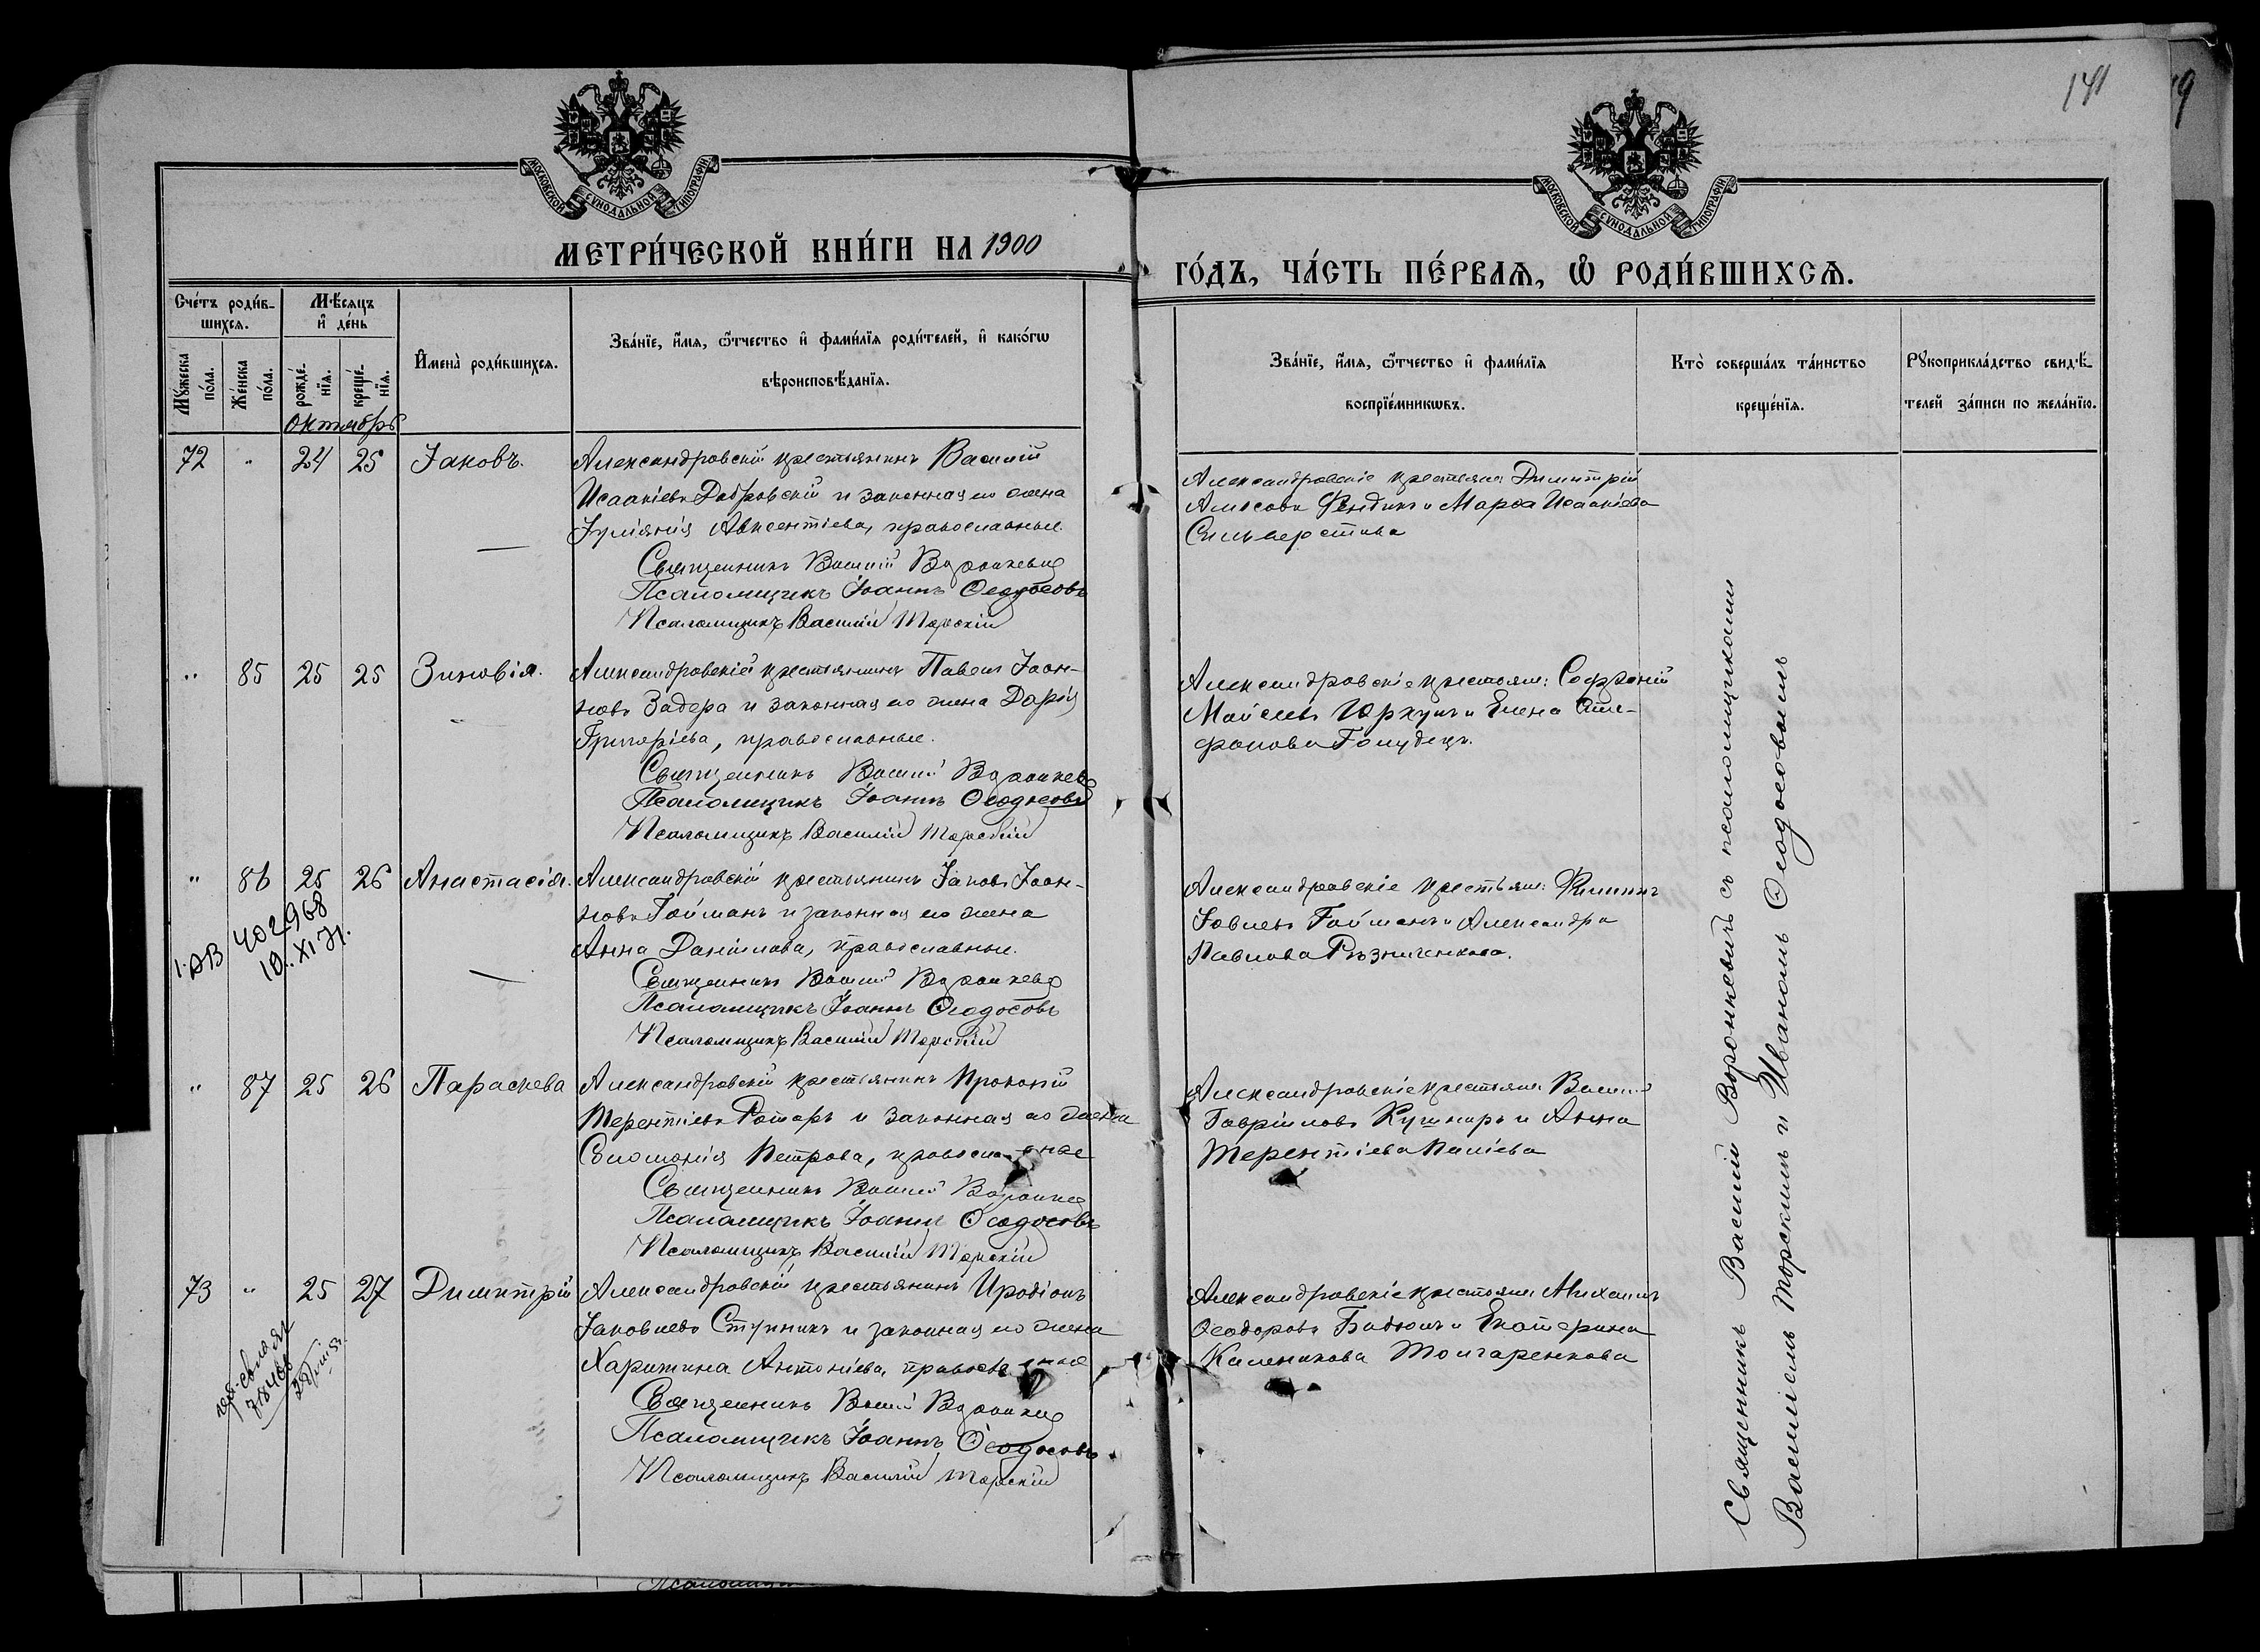 141
МОСКОВСКОЙ СѴНОДАЛЬНОЙ ТИПОГРАФІИ
МОСКОВСКОЙ СѴНОДАЛЬНОЙ ТИПОГРАФІИ
МЕТРИ́ЧЕСКОЙ КНИ́ГИ НА 1900
ГО́ДЪ, ЧА́СТЬ ПЕ́РВАѦ, Ѽ РОДИ́ВШИХСѦ.
Сче́тъ роди́в-
шихсѧ.
Мꙋжеска по́ла.
Же́нска по́ла.
Мѣ́сяцъ
и҆ де́нь
рожде́-
нїѧ.
креще́-
нїѧ.
И҆мена̀ роди́вшихсѧ.
Зва́нїе, и҆́мѧ, ѻ҆́тчество и҆ фами́лїѧ роди́телей, и҆ како́гѡ
вѣроисповѣ́данїѧ.
Зва́нїе, и҆́мѧ, ѻ҆́тчество и҆ фами́лїѧ
воспрїе́мникѡвъ.
Кто̀ соверша́лъ та́инство
креще́нїѧ.
Рꙋкоприкла́дство свидѣ́-
телей за́писи по жела́нїю.
Октябрь
72 " 24 25 Іаковъ.
Александровскій крестьянинъ Василій
Исаакіевъ Добровскій и законная его жена
Іуліанія Авксентіева, православные.
Священникъ Василій Воронкевичъ
Псаломщикъ Іоаннъ Ѳеодосовъ
Псаломщикъ Василій Торскій
Александровскіе крестьяне: Димитрій
Амосовъ Фендикъ и Марѳа Исаакіева
Сильверстова
" 85 25 25 Зиновія.
Александровскій крестьянинъ Павелъ Іоан-
новъ Задера и законная его жена Дарія
Григоріева, православные.
Священникъ Василій Воронкевичъ
Псаломщикъ Іоаннъ Ѳеодосовъ
Псаломщикъ Василій Торскій
Александровскіе крестьяне: Софроній
Моисеевъ Юрхунъ и Елена Сте-
фанова Голудецъ.
" 86 25 26 Анастасія.
Александровскій крестьянинъ Іаковъ Іоан-
новъ Гойманъ и законная его жена
Анна Даніилова, православные.
Священникъ Василій Воронкевичъ
Псаломщикъ Іоаннъ Ѳеодосовъ
Псаломщикъ Василій Торскій
Александровскіе крестьяне: Филиппъ
Іовлевъ Гойманъ и Александра
Павлова Рѣзниченкова.
402968
10.XI 71.
" 87 25 26 Параскева
Александровскій крестьянинъ Прокопій
Терентіевъ Ротарь и законная его жена
Соломонія Петрова, православные
Священникъ Василій Воронкевичъ
Псаломщикъ Іоаннъ Ѳеодосовъ
Псаломщикъ Василій Торскій
Александровскіе крестьяне: Василій
Гавріиловъ Кушниръ и Анна
Терентіева Паліева
73 " 25 27 Димитрій
Александровскій крестьянинъ Иродіонъ
Іаковлевъ Ступникъ и законная его жена
Харитина Антоніева, православные
Священникъ Василій Воронкевичъ
Псаломщикъ Іоаннъ Ѳеодосовъ
Псаломщикъ Василій Торскій
Александровскіе крестьяне: Михаилъ
Ѳеодоровъ Бадюлъ и Екатерина
Каленикова Толчаренкова
Священникъ Василій Воронкевичъ съ псаломщиками
Василіемъ Торскимъ и Иваномъ Ѳеодосовымъ